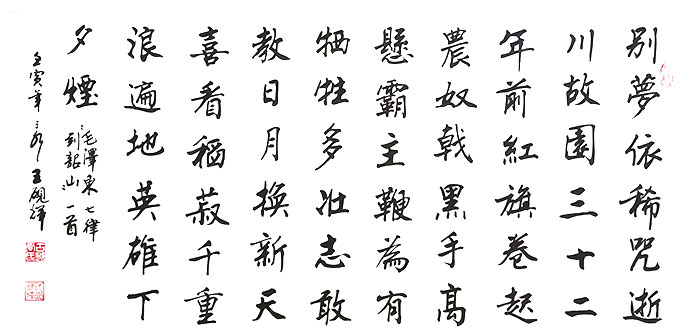 别夢依稀咒逝
川故園三十二
年前紅旗卷起
農奴戟黑手高
懸霸主鞭為有
牺牲多壯志敢
教日月換新天
喜看稻菽千重
浪遍地英雄下
夕煙
毛澤東七律
到韶山一首
壬寅年